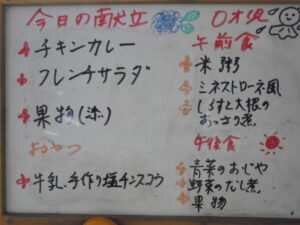 今日の献立
チキンカレー
フレンチサラダ
果物(涼)
おやつ
牛乳、手作り塩チンスコウ
0才児
午前食
米粥
ミネストローネ風
しらすと大根の
あっさり煮
午後食
青菜のおじや
野菜のだし煮
果物